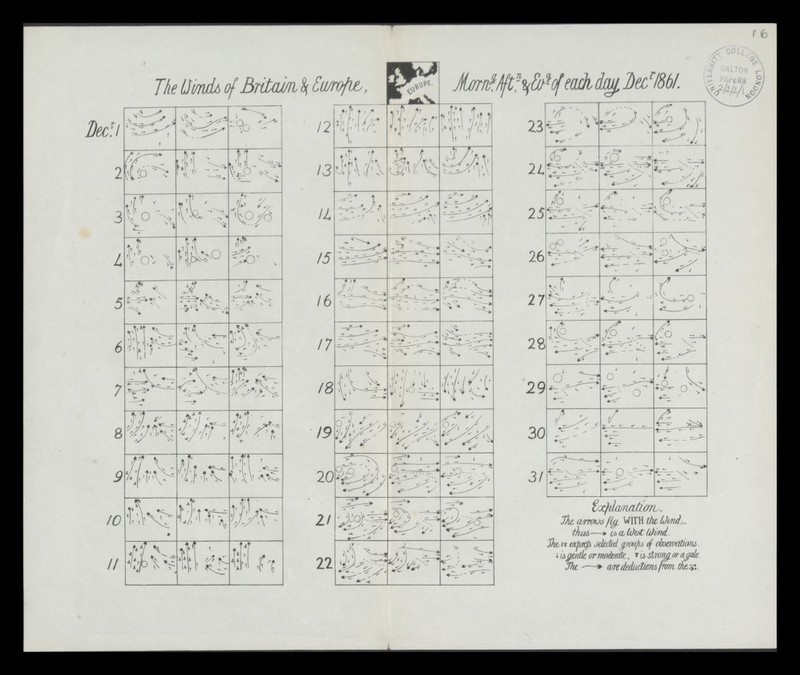 16
UNIVERSITY COLLEGE LONDON
GALTON
PAPERS
2/4/1/1
The Winds of Britain & Europe,
EUROPE.
Morng. Aftn. & Evg. of each day, Decr. 1861.
Decr. 1
2
3
4
5
6
7
8
9
10
11
12
13
14
15
16
17
18
19
20
21
22
23
24
25
26
27
28
29
30
31
Explanation.
The arrows fly WITH the Wind.
thus → is a West Wind.
The express selected groups of observations.
is gentle or moderate, is strong or a gale.
The → are deductions from the